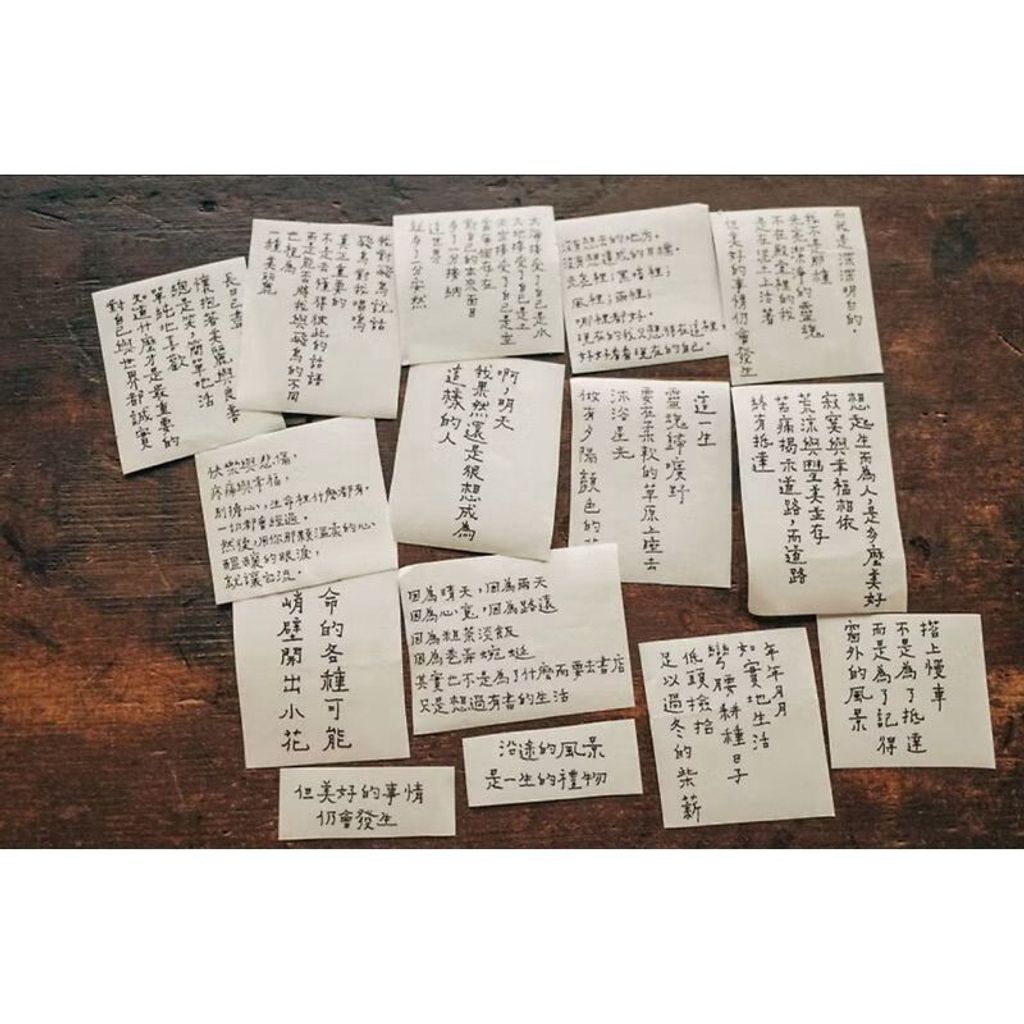 長日已盡
懷抱著美麗與良善
總是笑，簡單地活
單純地喜歡
知道什麼才是最重要的
對自己與世界都誠實
我對飛鳥說話
飛鳥對我唱鳴
真正重要的
不是去懂得彼此的話語
而是能否將我與飛鳥的不同
也視為
一種美麗
大海接受了自己是水
大地接受了自己是土
天空接受了自己是空
當每個存在
對自己的本來面目
多了一分接納
這世界
就多了一分安然
沒有想去的地方。
沒有想達成的目標。
光亮裡；黑暗裡；
風裡；雨裡；
哪裡都好。
現在的我只想待在這裡，
好好看看現在的自己。
而我是深深明白的。
我不是那種
光亮潔淨的靈魂
不在殿堂裡的我
是在泥土上活著
但美好的事情仍會發生
快樂與悲傷，
疼痛與幸福，
別擔心，生命裡什麼都有。
一切都會經過。
然後，用你那顆溫柔的心
醞釀的眼淚，
就讓它流。
啊，明天
我果然還是很想成為
這樣的人
這一生
靈魂歸曠野
要在柔軟的草原上座去
沐浴星光
做有夕陽顏色的
想起生而為人，是多麼美好
寂寞與幸福相依
荒涼與豐美並存
苦痛揭示道路，而道路
終有抵達
命的各種可能
峭壁開出小花
因為晴天，因為雨天
因為心寬，因為路遠
因為粗茶淡飯
因為巷弄蜿蜒
其實也不是為了什麼而要去書店
只是想過有書的生活
年年月月
如實地生活
彎腰耕種日子
低頭撿拾
足以過冬的柴薪
搭上慢車
不是為了抵達
而是為了記得
窗外的風景
但美好的事情
仍會發生
沿途的風景
是一生的禮物